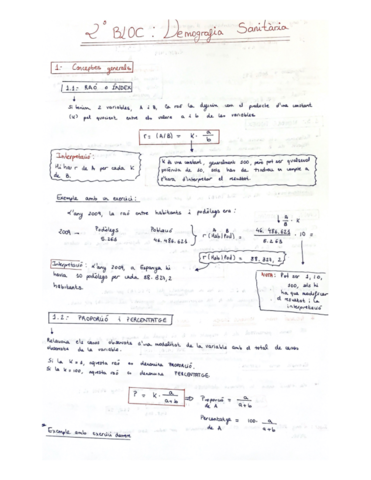 2º BLOC : Demografia Sanitària
1. Conceptes generals
1.1: RAÓ o ÍNDEX
Si tenim 2 variables, A i B, la raó la definim com el producte d'una constant
(K) pel quocient entre els valors a i b de les variables.
r = (A/B) = K · a/b
Interpretació :
Hi ha r de A per cada K
de B.
K és una constant, generalment 100, però pot ser qualsevol
potència de 10, sols hem de tindre-ho en compte a
l'hora d'interpretar el resultat.
Exemple amb un exercici :
L'any 2009, la raó entre habitants i podòlegs era :
a/B · K
2009 → Podòlegs Població
5.263 46.486.621
r (Hab/Pod) = 46.486.621 / 5.263 · 10 =
r (Hab/Pod) = 88.327,2
Interpretació : L'any 2009, a Espanya hi
havia 10 podòlegs per cada 88.327,2
habitants.
NOTA : Pot ser 1, 10,
100, sols hi
ha que modificar
el resultat i la
interpretació
1.2: PROPORCIÓ i PERCENTATGE
Relaciona els casos observats d'una modalitat de la variable amb el total de casos
observats de la variable.
Si la K = 1, aquesta raó es denomina PROPORCIÓ.
Si la K = 100, aquesta raó es denomina PERCENTATGE.
P = K · a/a+b ⇒ Proporció de A = a/a+b
Percentatge de A = 100 · a/a+b
Exemple amb exercici darrere